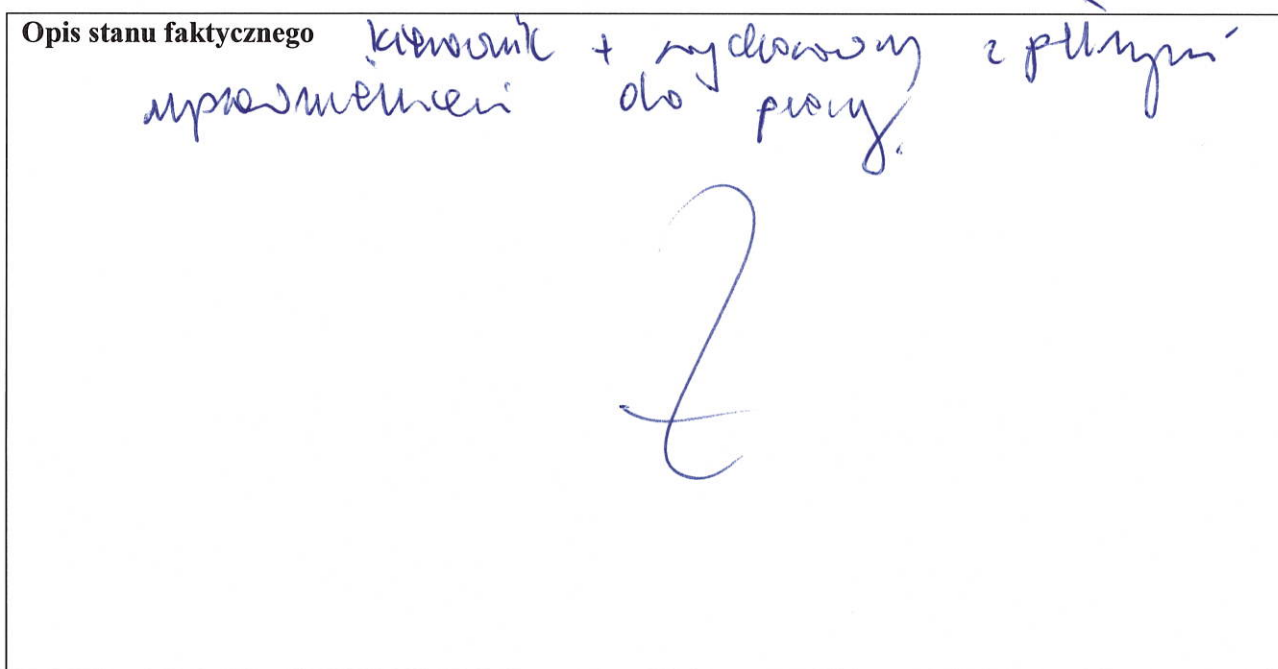 Opis stanu faktycznego kierownik + wychowawcy z pełnymi
uprawnieniami do pracy.